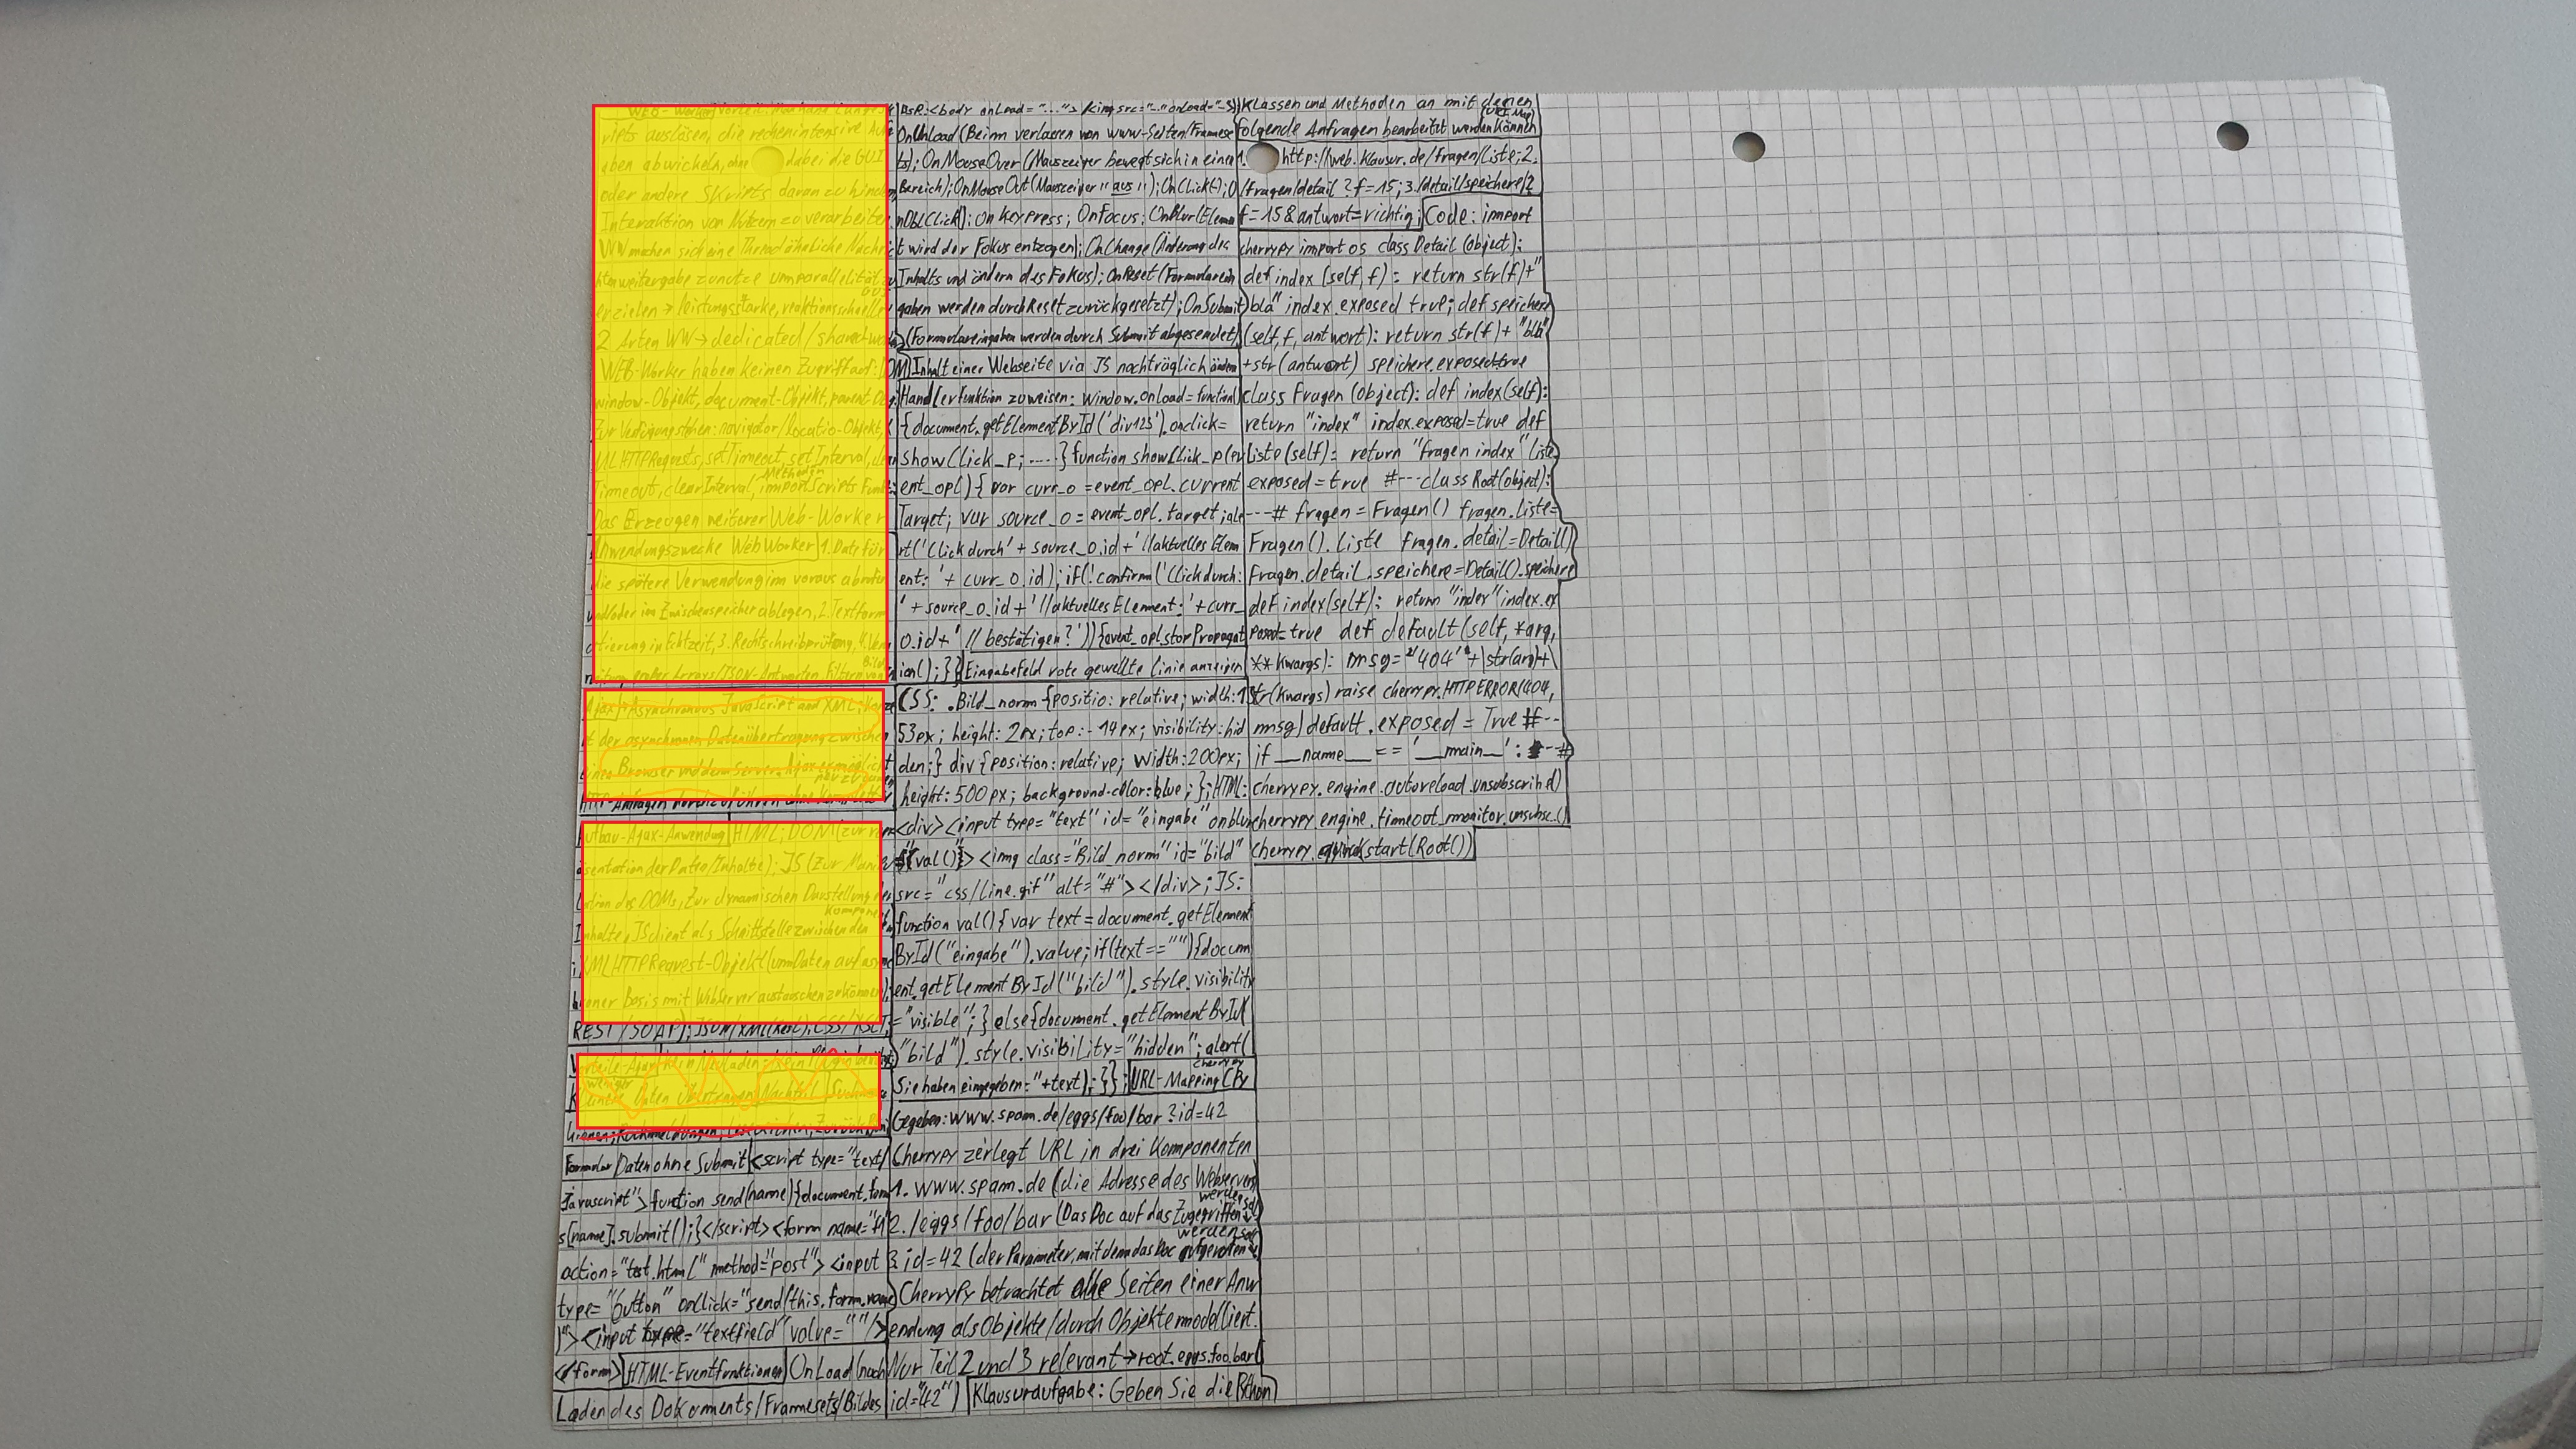 WEB-Worker
ripts auslösen, die rechenintensive Auf
aben abwickeln, ohne dabei die GUI
oder andere Skripts daran zu hindern
Interaktion von Nutzern zu verarbeiten.
WW machen sich eine Thread ähnliche Nachri
htenweitergabe zunutze um parallelität zu
erzielen → leistungsstarke, reaktionsschnelle
2 Arten WW → dedicated / shared
WEB-Worker haben keinen Zugriff auf: DOM
window-Objekt, document-Objekt, parent-Obj.
Zur Verfügung stehen: navigator/locatio-Objekt,
XMLHTTPRequests, setTimeout, setInterval,
Timeout, clearInterval, importScripts
Methoden
Das Erzeugen weiterer Web-Worker
Anwendungszwecke WebWorker 1. Dats für
die spätere Verwendung im voraus abrufen
und/oder im Zwischenspeicher ablegen, 2. Textform
atierung in Echtzeit, 3. Rechtschreibprüfung, 4.
großer Arrays/JSON-Antworten, Filtern von
Bild
Ajax → Asynchronous JavaScript and XML; Konze
pt der asynchronen Datenübertragung zwischen
einem Browser und dem Server. Ajax ermöglicht
HTTP-Anfragen
Aufbau-Ajax-Anwendung HTML; DOM (zur repr
äsentation der Daten/Inhalte); JS (zur Mani
lation des DOMs, zur dynamischen Darstellung der
Inhalte. JS dient als Schnittstelle zwischen den
Komponent
XMLHTTPRequest-Objekt (um Daten auf async
hroner Basis mit Webserver austauschen zu können);
REST/SOAP); JSON/XML
Vorteile-Ajax
weniger
Daten übertragen Nachteil
Formular Daten ohne Submit <script type="text/
Javascript"> function send(name){document.form
s[name].submit();}</script><form name="f1"
action="test.html" method="post"> <input
type="button" onClick="send(this.form.name
)"><input type="textfield" value=""/>
</form> HTML-Eventfunktionen OnLoad (nach
Laden des Dokuments/Framesets/Bildes
BSP: <body onLoad="..."> <img src="..." onload="
OnUnload (Beim verlassen von www-Seiten/Framese
ts); OnMouseOver (Mauszeiger bewegt sich in einen
Bereich); OnMouseOut (Mauszeiger "aus"); OnClick(); O
nDblClick(); OnKeyPress; OnFocus; OnBlur (Eleme
t wird der Fokus entzogen); OnChange (Änderung des
Inhalts und ändern des Fokus); OnReset (Formularein
gaben werden durch Reset zurückgesetzt); OnSubmit
(Formulareingaben werden durch Submit abgesendet)
Inhalt einer Webseite via JS nachträglich ändern
Handlerfunktion zuweisen: window.onload=function()
{document.getElementById('div123').onclick=
showClick_p; .....} function showClick_p(ev
ent_opl) { var curr_o = event_opl.current
Target; var source_o = event_opl.target; ale
rt('Click durch' + source_o.id + '//aktuelles Elem
ent: ' + curr_o.id); if(!confirm('Click durch:
' + source_o.id + '//aktuelles Element: ' + curr_
o.id + ' // bestätigen?')){event_opl.stopPropagat
ion();}} Eingabefeld rote gewellte linie anzeigen
CSS: .Bild_norm {positio: relative; width: 1
53px; height: 2px; top: -14px; visibility: hid
den;} div {position: relative; width: 200px;
height: 500px; background-color: blue; }; HTML:
<div> <input type="text" id="eingabe" onblur
="val()"> <img class="Bild_norm" id="bild"
src="css/line.gif" alt="#"></div>; JS:
function val() { var text = document.getElement
ById("eingabe").value; if(text==""){docum
ent.getElementById("bild").style.visibility
="visible"; } else {document.getElementById(
"bild").style.visibility="hidden"; alert("
Sie haben eingegeben:"+text); }}; URL-Mapping CherryPy
Gegeben: www.spam.de/eggs/foo/bar?id=42
CherryPy zerlegt URL in drei Komponenten
1. www.spam.de (die Adresse des Webservers
2. /eggs/foo/bar (Das Doc auf das Zugegriffen werden soll)
3. id=42 (der Parameter, mit dem das Doc aufgerufen werden soll
CherryPy betrachtet alle Seiten einer Anw
endung als Objekte/durch Objekte modelliert.
Nur Teil 2 und 3 relevant → root.eggs.foo.bar(
id="42") Klausuraufgabe: Geben Sie die Python
Klassen und Methoden an mit denen
(URL Map)
folgende Anfragen bearbeitet werden können
1. http://web.klausur.de/fragen/liste; 2.
/fragen/detail?f=15; 3. /detail/speichere/?
f=15&antwort=richtig; Code: import
cherrypy import os class Detail (object):
def index (self, f): return str(f)+"
bla" index.exposed true; def speichere
(self, f, antwort): return str(f)+"bla"
+str(antwort) speichere.exposed=true
class Fragen (object): def index(self):
return "index" index.exposed=true def
liste(self): return "fragen index" liste
exposed=true #---class Root(object):
---# fragen = Fragen() fragen.liste=
Fragen().liste fragen.detail=Detail()
fragen.detail.speichere=Detail().speichere
def index(self): return "index" index.ex
posed=true def default(self, *arg,
**kwargs): msg="404"+str(arg)+
str(kwargs) raise cherrypy.HTTPERROR(404,
msg) default.exposed = True #--
if __name__ == '__main__': --#
cherrypy.engine.autoreload.unsubscribe()
cherrypy.engine.timeout_monitor.unsubsc.()
cherrypy.quickstart(Root())